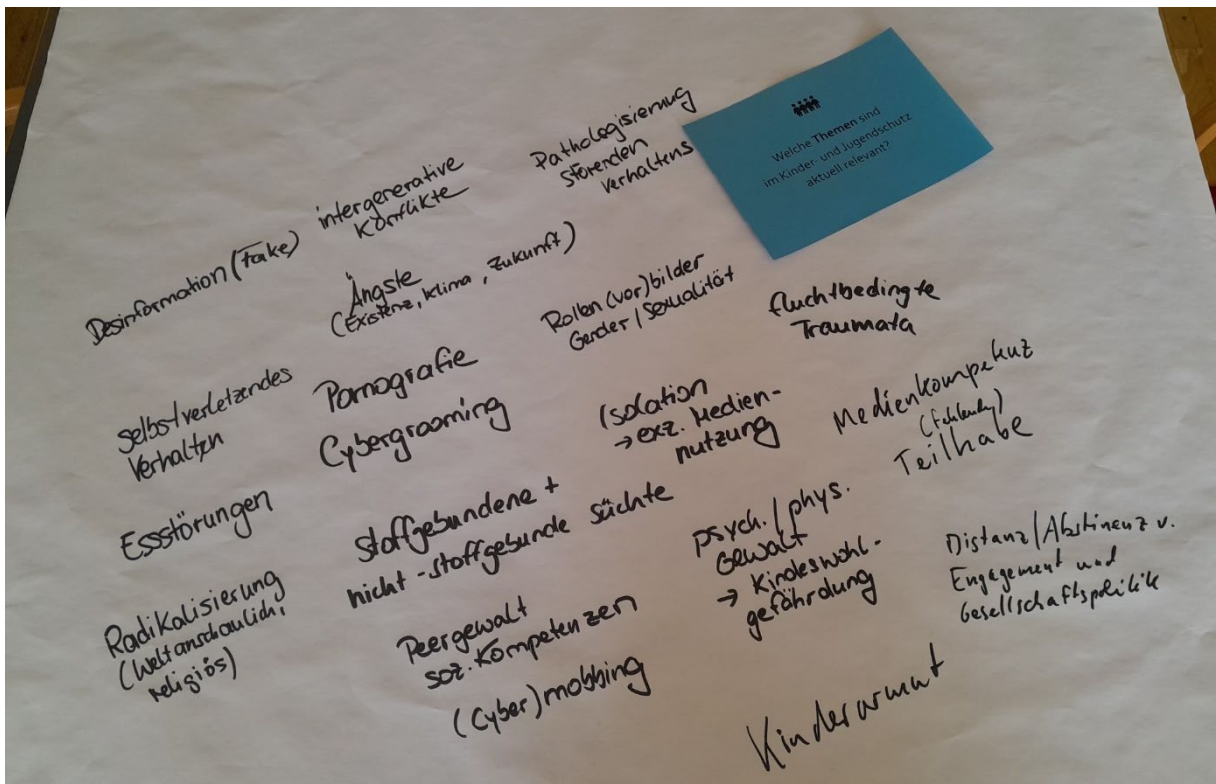 Welche Themen sind
im Kinder- und Jugendschutz
aktuell relevant?
Desinformation (Fake)
intergenerative
Konflikte
Pathologisierung
störenden
Verhaltens
Ängste
(Existenz, Klima, Zukunft)
Rollen(vor)bilder
Gender / Sexualität
fluchtbedingte
Traumata
selbstverletzendes
Verhalten
Pornografie
Cybergrooming
Isolation
→ exz. Medien-
nutzung
Medienkompetenz
(fehlende)
Teilhabe
Essstörungen
stoffgebundene +
nicht-stoffgebunde Süchte
psych. / phys.
Gewalt
→ Kindeswohl-
gefährdung
Distanz / Abstinenz v.
Engagement und
Gesellschaftspolitik
Radikalisierung
(Weltanschaulich,
religiös)
Peergewalt
soz. Kompetenzen
(Cyber)mobbing
Kinderarmut